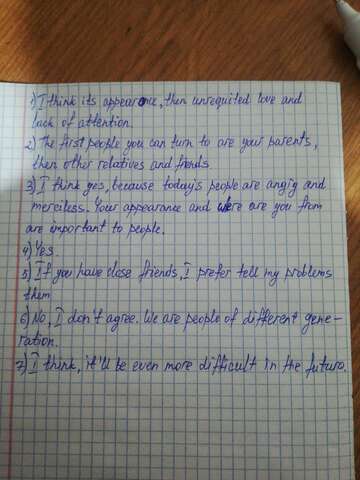 1) I think its appearance, then unrequited love and
lack of attention.
2) The first people you can turn to are your parents,
then other relatives and friends.
3) I think yes, because today's people are angry and
merciless. Your appearance and were are you from
are important to people.
4) Yes.
5) If you have close friends, I prefer tell my problems
them.
6) No, I don't agree. We are people of different gene-
ration.
7) I think, it'll be even more difficult in the future.